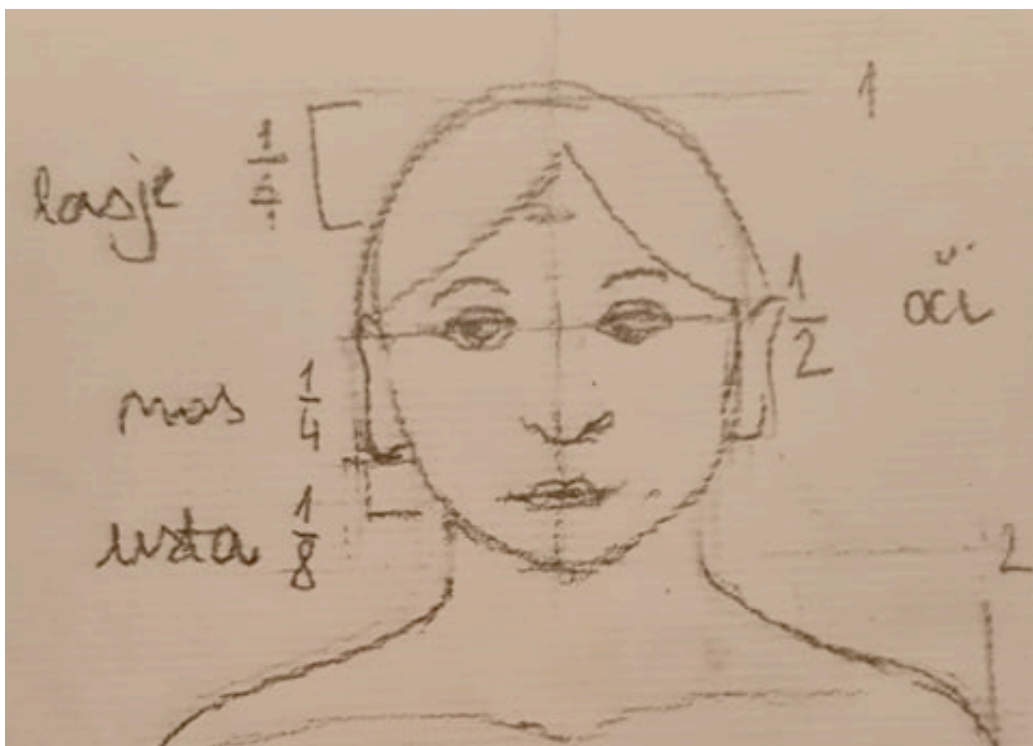 1
lasje
1/2 oči
nos 1/4
usta 1/8
2